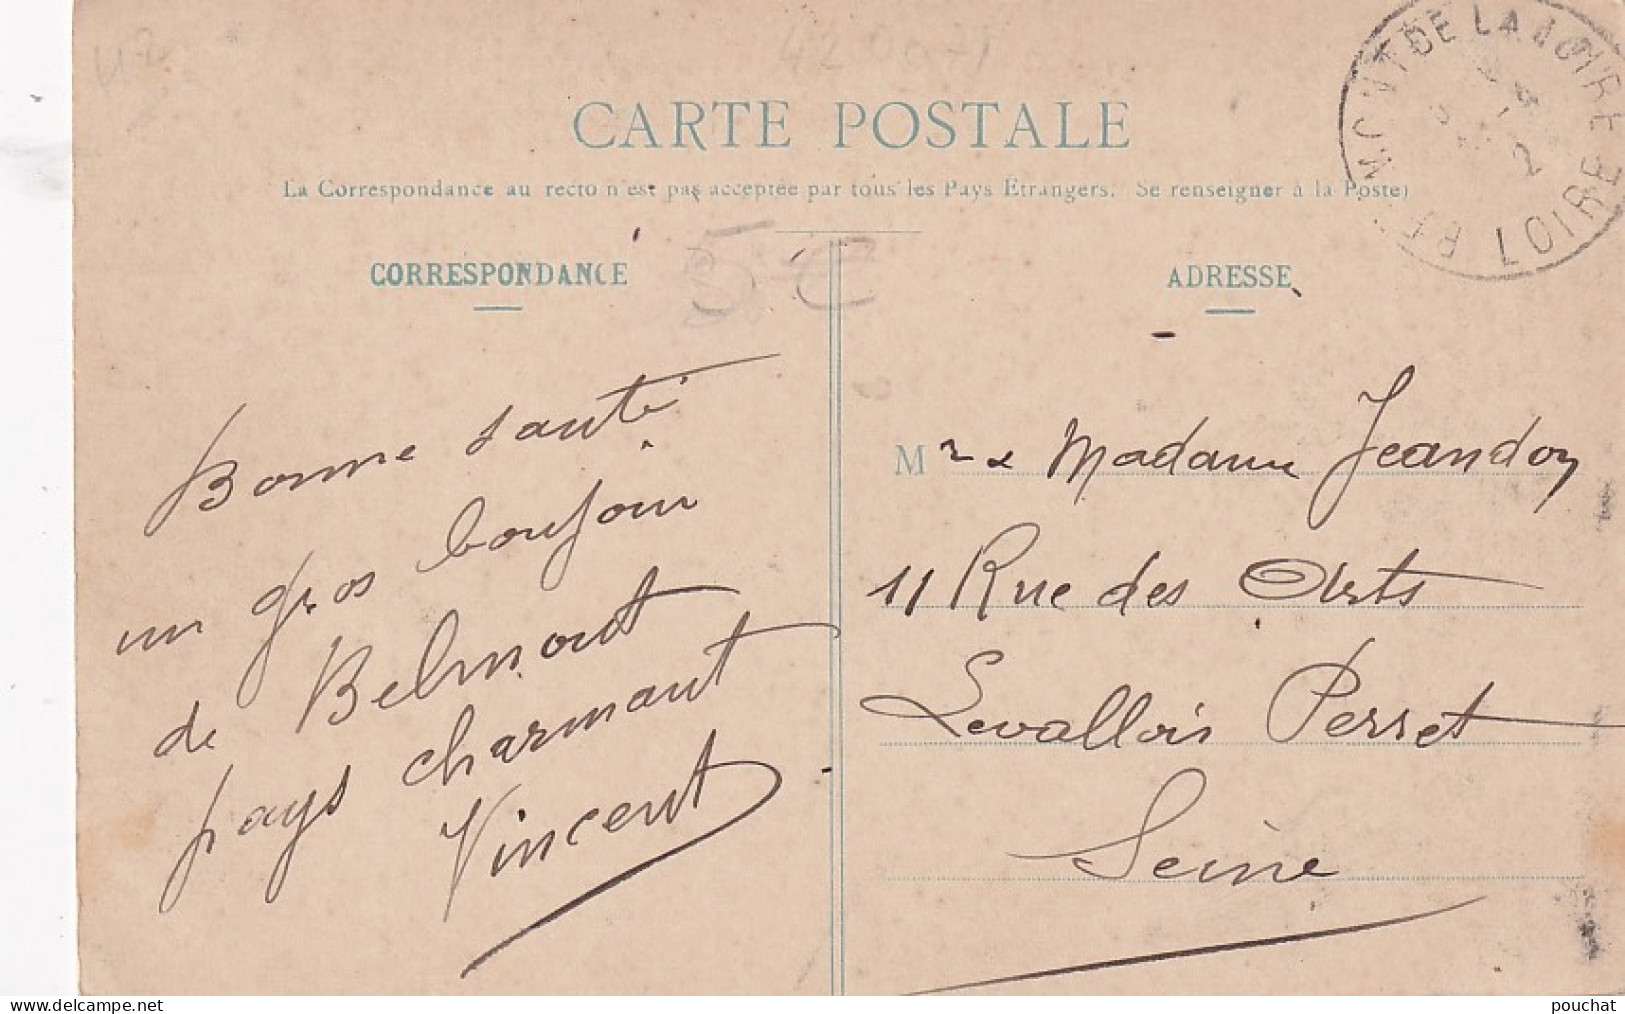 42
CARTE POSTALE
La Correspondance au recto n'est pas acceptée par tous les Pays Étrangers. Se renseigner à la Poste)
BELMONT DE LA LOIRE
LOIRE
CORRESPONDANCE
5 €
ADRESSE
Bonne santé
un gros bonjour
de Belmont
pays charmant
Vincent
Mr & Madame Jeandon
11 Rue des Arts
Levallois Perret
Seine
www.delcampe.net
pouchat